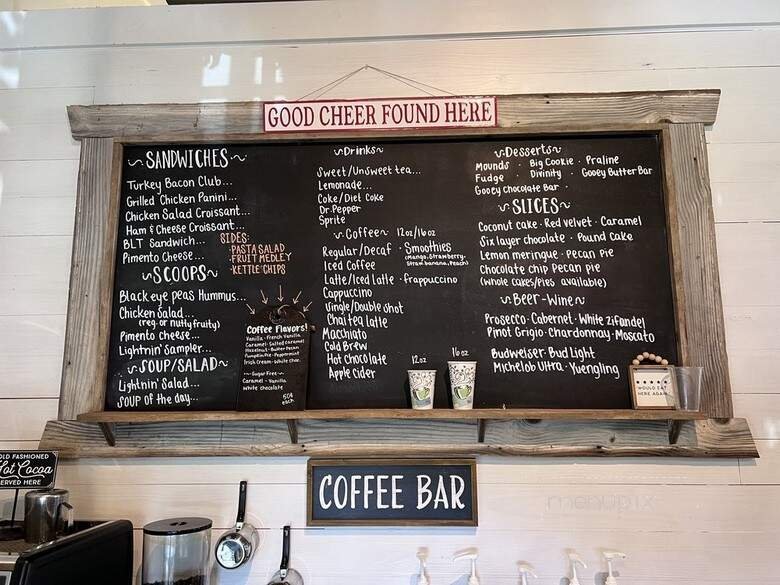 GOOD CHEER FOUND HERE
SANDWICHES
Turkey Bacon Club...
Grilled Chicken Panini...
Chicken Salad Croissant...
Ham & Cheese Croissant...
BLT Sandwich...
Pimento Cheese...
SIDES:
•PASTA SALAD
•FRUIT MEDLEY
•KETTLE CHIPS
~SCOOPS~
Black eye peas Hummus...
Chicken Salad...
(reg. or nutty fruity)
Pimento Cheese...
Lightnin' Sampler...
~SOUP/SALAD~
Lightnin' Salad...
SOUP of the day...
Coffee Flavors!
Vanilla • French Vanilla
Caramel • Salted Caramel
Hazelnut • Butter Pecan
Pumpkin Pie • Peppermint
Irish Cream • White Choc.
~Sugar Free~
Caramel • Vanilla
White chocolate
50¢
each
~Drinks~
Sweet/Unsweet tea...
Lemonade...
Coke/Diet Coke
Dr. Pepper
Sprite
~Coffee~ 12oz/16oz
Regular/Decaf
Iced Coffee
Latte/Iced Latte • Frappuccino
Cappuccino
Single/Double shot
Chai tea latte
Macchiato
Cold Brew
Hot Chocolate
Apple Cider
• Smoothies
(Mango, Strawberry,
Straw banana, Peach)
12oz
16oz
~Desserts~
Mounds • Big Cookie • Praline
Fudge • Divinity • Gooey Butter Bar
Gooey Chocolate Bar •
~SLICES~
Coconut cake • Red velvet • Caramel
Six layer chocolate • Pound Cake
Lemon meringue • Pecan Pie
Chocolate chip Pecan pie
(whole cakes/pies available)
~Beer-Wine~
Prosecco • Cabernet • White Zifandel
Pinot Grigio • Chardonnay • Moscato
Budweiser • Bud Light
Michelob Ultra • Yuengling
WOULD EAT
HERE AGAIN
OLD FASHIONED
Hot Cocoa
SERVED HERE
COFFEE BAR
menupix